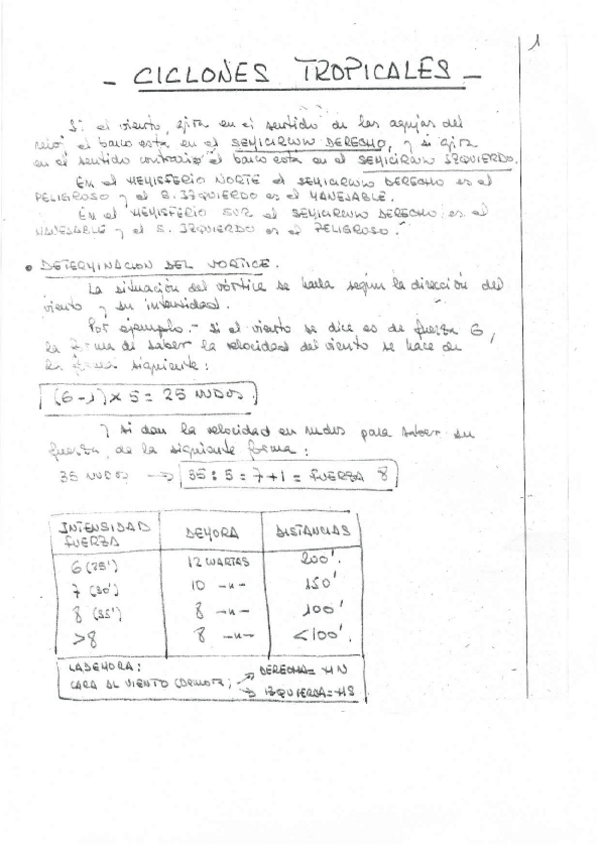 1
- CICLONES TROPICALES -
Si el viento, gira en el sentido de las agujas del
reloj el barco esta en el SEMICIRCULO DERECHO, y si gira
en el sentido contrario el barco esta en el SEMICIRCULO IZQUIERDO.
En el HEMISFERIO NORTE el SEMICIRCULO DERECHO es el
PELIGROSO y el S. IZQUIERDO es el MANEJABLE.
En el HEMISFERIO SUR el SEMICIRCULO DERECHO es el
MANEJABLE y el S. IZQUIERDO es el PELIGROSO.
• DETERMINACION DEL VORTICE.
La situación del vórtice se halla según la dirección del
viento y su intensidad.
Por ejemplo.- Si el viento se dice es de fuerza 6,
la forma de saber la velocidad del viento se hace de
la forma siguiente:
(6-1) x 5 = 25 NUDOS.
y si dan la velocidad en nudos para saber su
fuerza, de la siguiente forma:
35 NUDOS → 35 : 5 = 7 + 1 = FUERZA 8
INTENSIDAD FUERZA DEMORA DISTANCIAS
6 (25') 12 CUARTAS 200'.
7 (30') 10 -u- 150'
8 (35') 8 -u- 100'
>8 8 -u- <100'.
LA DEMORA: DERECHA = HN
CARA AL VIENTO IZQUIERDA = HS